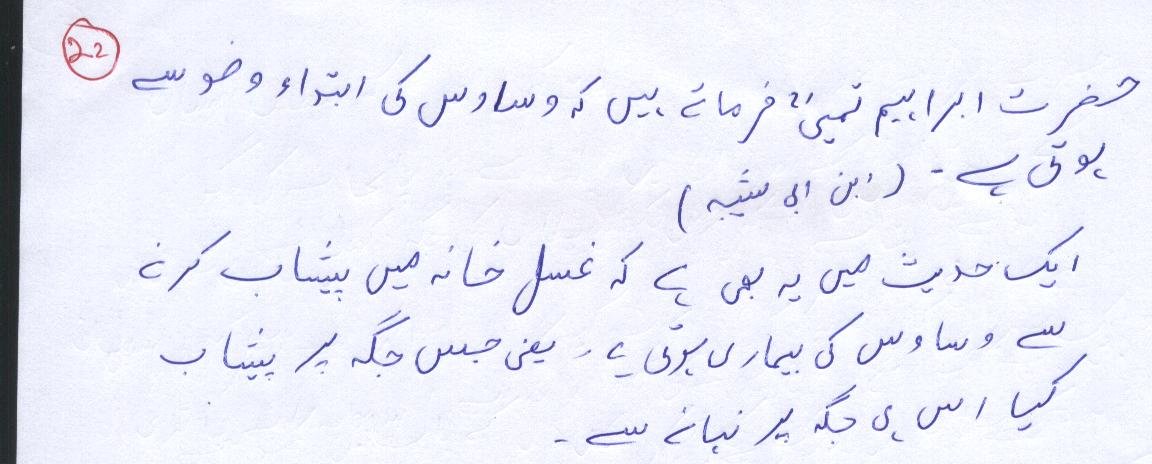 22
حضرت ابراہیم تیمیؒ فرماتے ہیں کہ وساوس کی ابتداء وضو سے
ہوتی ہے۔ (ابن ابی شیبہ)
ایک حدیث میں یہ بھی ہے کہ غسل خانہ میں پیشاب کرنے
سے وساوس کی بیماری ہوتی ہے۔ یعنی جس جگہ پر پیشاب
کیا اس ہی جگہ پر نہانے سے۔